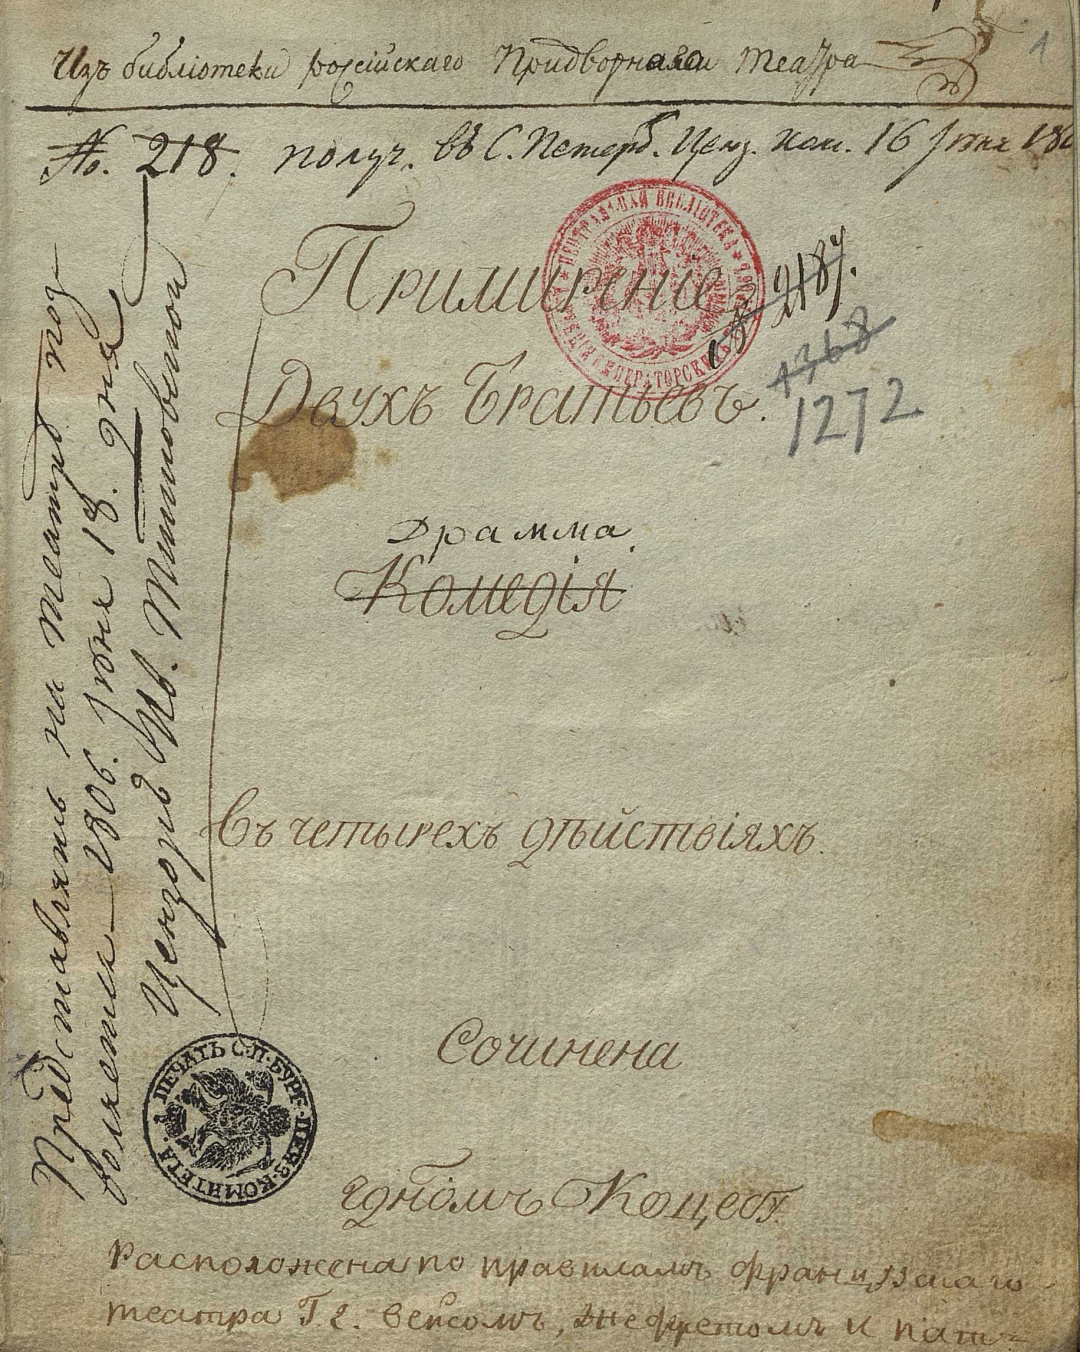 Изъ библіотеки россійскаго Придворнаго театра
1
№. 218. получ. въ С. Петерб. Ценз. Ком. 16 Іюня 180
Примиреніе
2187.
1368
Двухъ Братьевъ.
1272
Драмма.
Комедія
въ четырехъ дѣйствіяхъ.
Сочинена
Гдномъ Коцебу.
Расположена по правиламъ французскаго
театра Г. Вейсомъ, Жефретомъ и пат
Представлять на театрѣ поз
воляется 1806. Іюня 18. дня
Цензоръ Ив. Тимковской
ПЕЧАТЬ С.П.БУРГ. ЦЕНЗ. КОМИТЕТА.
ЦЕНТРАЛЬНАЯ БИБЛІОТЕКА ИМПЕРАТОРСКИХЪ